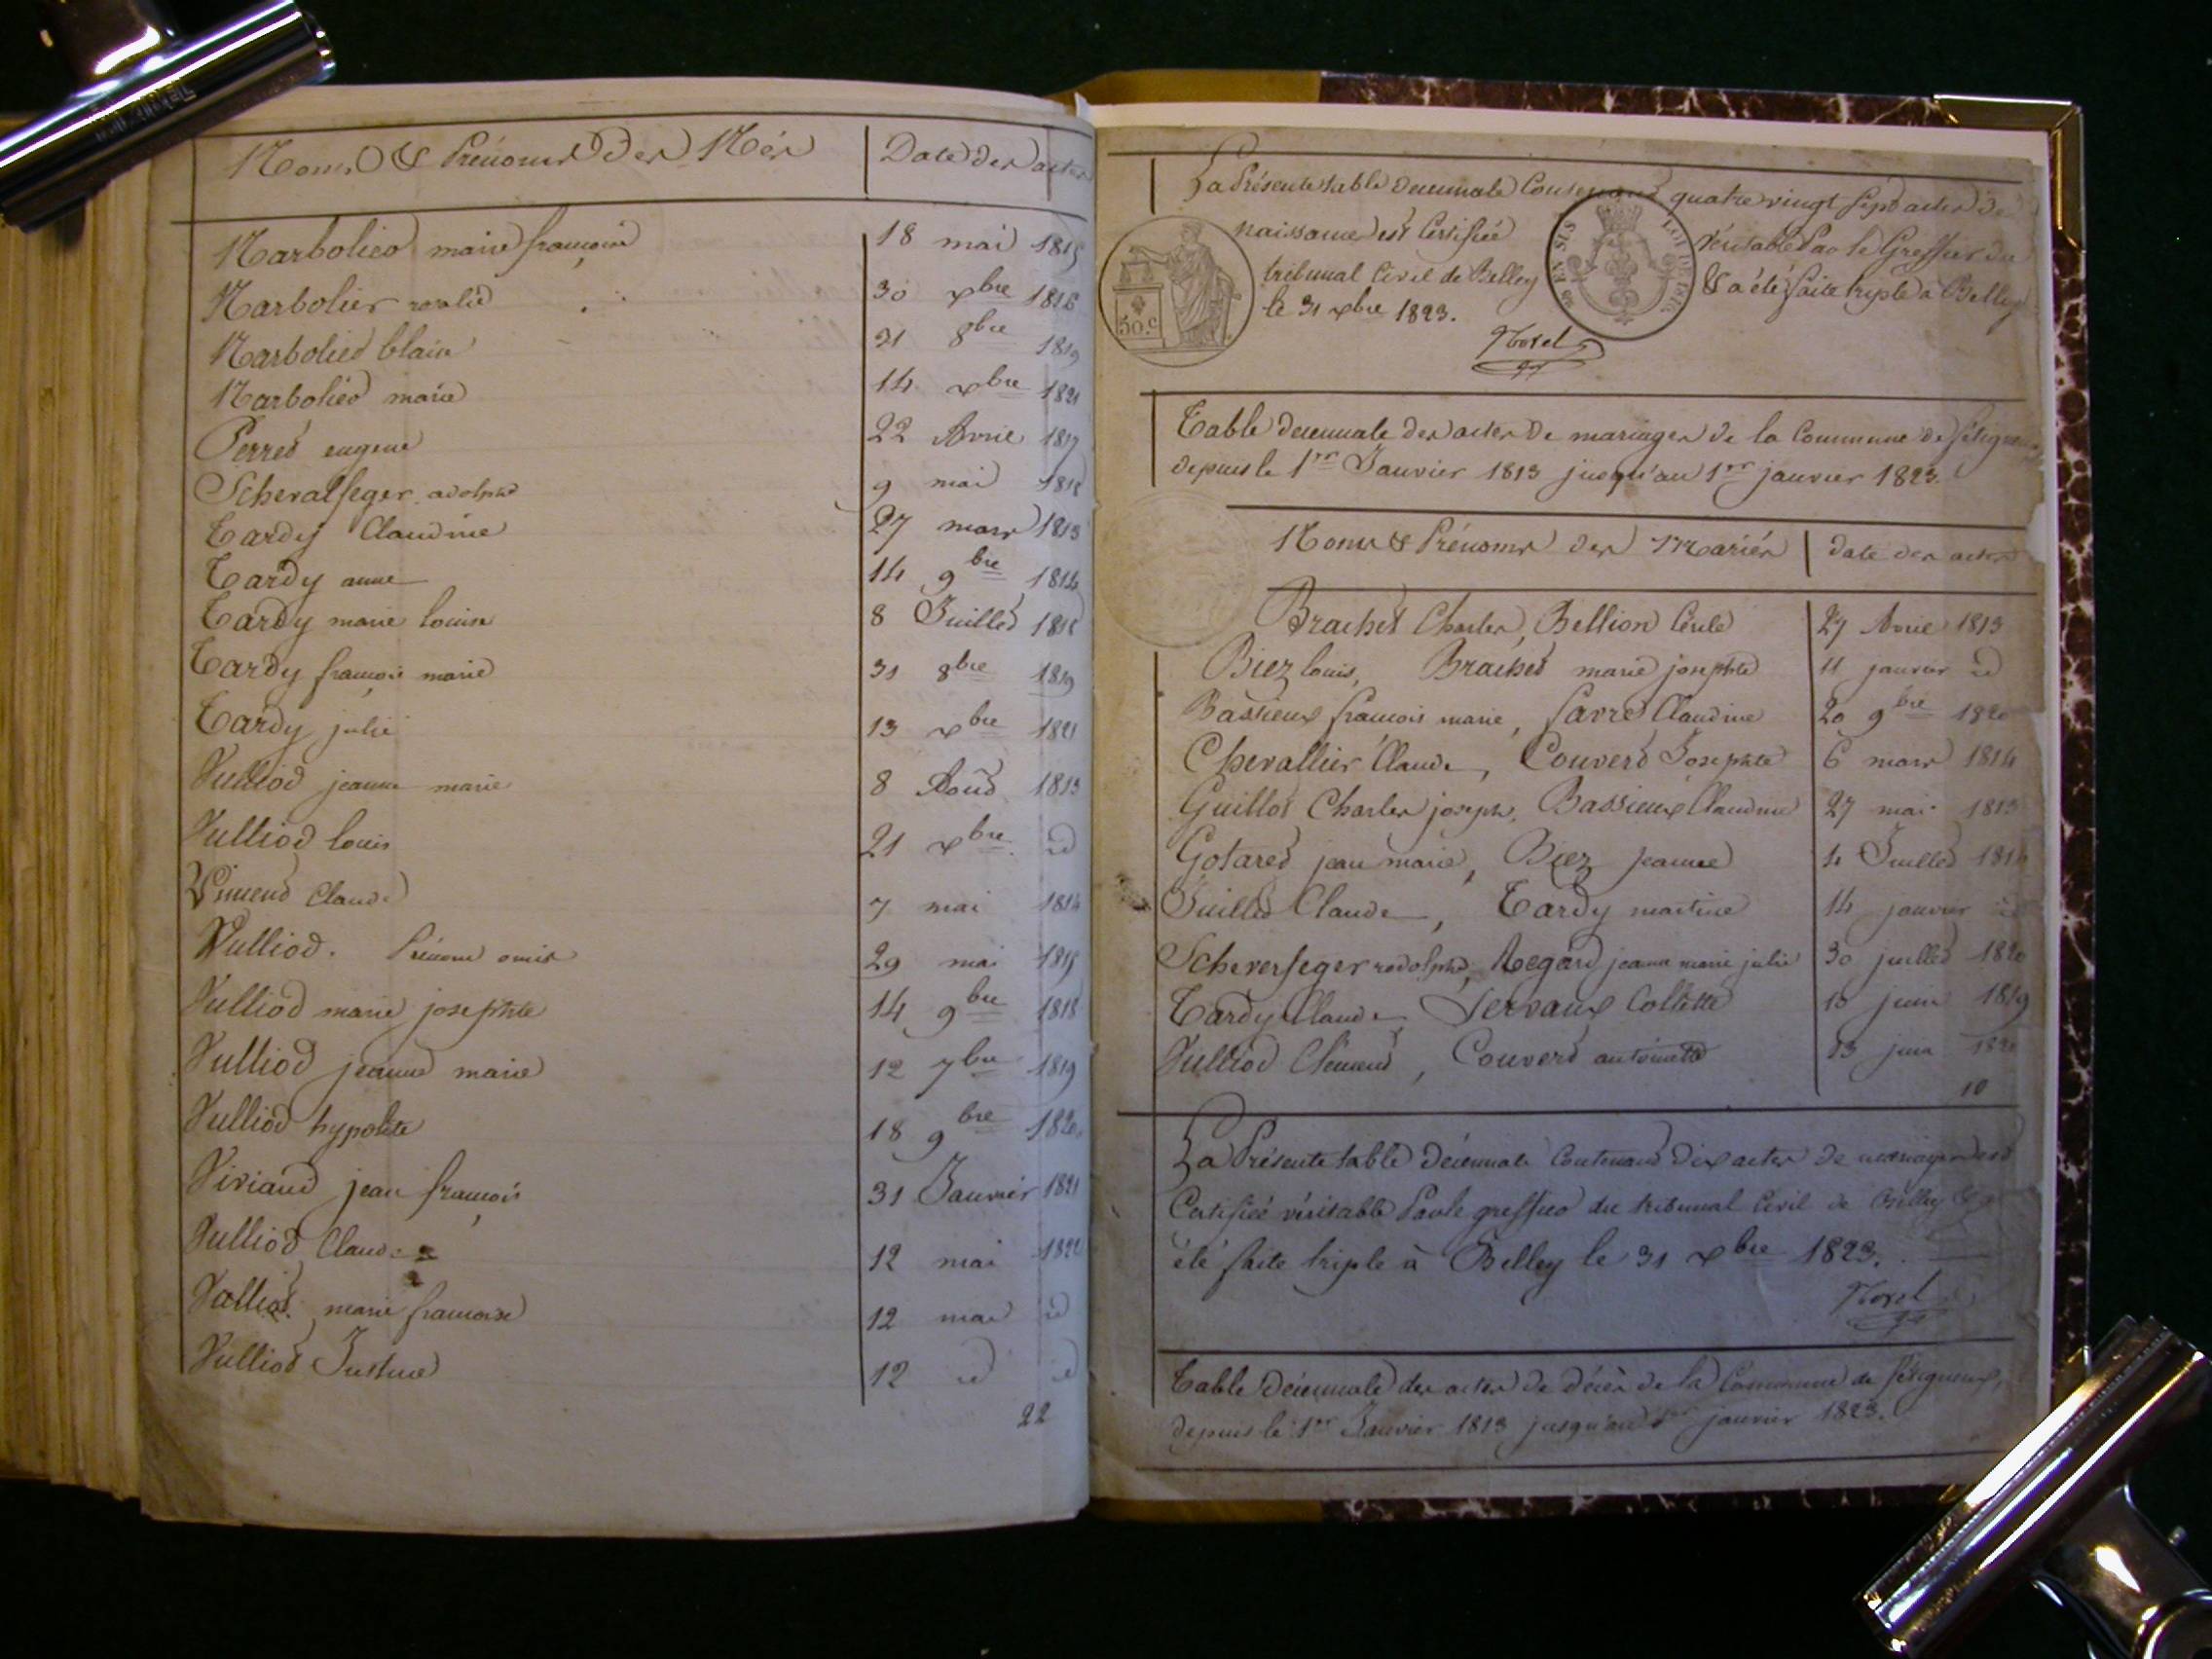 Noms & Prénoms des Nés | Date des actes
Narbolier marie françoise 18 mai 1815
Narbolier rosalie 30 xbre 1816
Narbolier blaise 31 8bre 1819
Narbolier marie 14 xbre 1821
Perret eugene 22 Avril 1817
Scheralseger adolphe 9 mai 1818
Tardy Claudine 27 mars 1813
Tardy anne 14 9bre 1814
Tardy marie louise 8 Juillet 1818
Tardy françois marie 31 8bre 1819
Tardy julie 13 xbre 1821
Vulliod jeanne marie 8 Aout 1813
Vulliod louis 21 xbre id
Vincend Claude 7 mai 1814
Vulliod. Prénom omis 29 mai 1815
Vulliod marie josephte 14 9bre 1818
Vulliod jeanne marie 12 7bre 1819
Vulliod hypolite 18 9bre 1820
Viviand jean françois 31 Janvier 1821
Vulliod Claude 12 mai 1822
Vulliod marie francoise 12 mai id
Vulliod Justine 12 id id
22
La Présente table decennale Contenant quatre vingt sept actes de
naissance est Certifiée véritable Par le Greffier du
tribunal Civil de Belley & a été faite triple à Belley
le 31 xbre 1823.
50.c
LOI DE 1816
Morel
Table decennale des actes de mariages de la Commune de
depuis le 1er Janvier 1813 jusqu'au 1er janvier 1823.
Noms & Prénoms des Mariés | date des actes
Brachet Charles, Bellion Cécile 27 Avril 1813
Biez louis, Brachet marie josephte 11 janvier id
Bassieux francois marie, favre Claudine 20 9bre 1820
Chevallier Claude, Couverd Josephte 6 mars 1814
Guillot Charles joseph, Bassieux Claudine 27 mai 1813
Gotared jean marie, Biez jeanne 4 Juillet 1814
Juilled Claude, Tardy martine 14 janvier id
Scheverseger rodolphe, Regard jeanne marie julie 30 juillet 1820
Tardy Claude, Servaux Collette 10 juin 1819
Vulliod Clément, Couverd antoinette 13 juin 1820
10
La Présente table décennale Contenant dix actes de mariages est
Certifiée véritable Par le greffier du tribunal Civil de Belley & a
été faite triple à Belley le 31 xbre 1823.
Morel
Table décennale des actes de décès de la Commune de
depuis le 1er Janvier 1813 jusqu'au 1er janvier 1823.